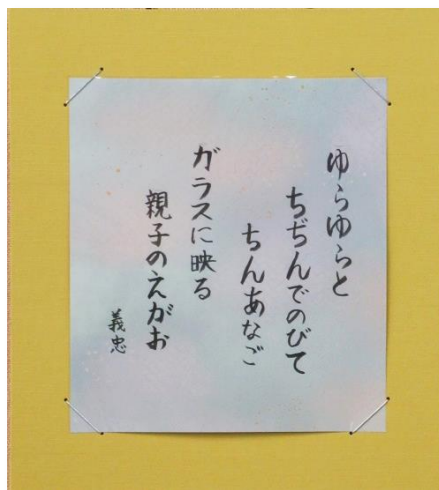 ゆらゆらと
ちぢんでのびて
ちんあなご
ガラスに映る
親子のえがお
義忠